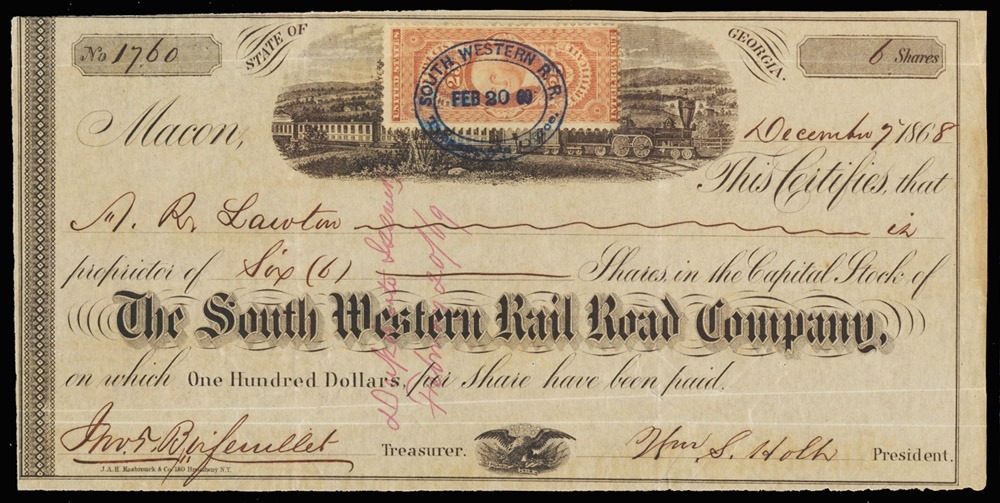 No 1760
STATE OF
GEORGIA.
6 Shares
UNITED STATES
SOUTH WESTERN R.R.
FEB 20 69
Macon,
December 7 1868
This Certifies, that
A. R. Lawton is
proprietor of Six (6) Shares, in the Capital Stock of
The South Western Rail Road Company,
on which One Hundred Dollars, per share have been paid.
Jno. T. Boifeuillet Treasurer.
Wm S. Holt President.
J.A.H. Hasbrouck & Co. 180 Broadway N.Y.
Duplicate Issued
Feby 20/69